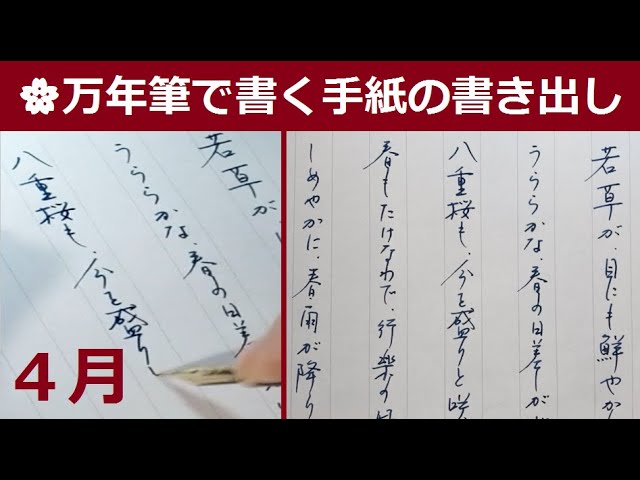 万年筆で書く手紙の書き出し
若草が
うららかな、春の日差
八重桜も、今を盛り
4月
若草が、目にも鮮やか
うららかな、春の日差しが
八重桜も、今を盛りと咲
春もたけなわで、行楽の
しめやかに、春雨が降り